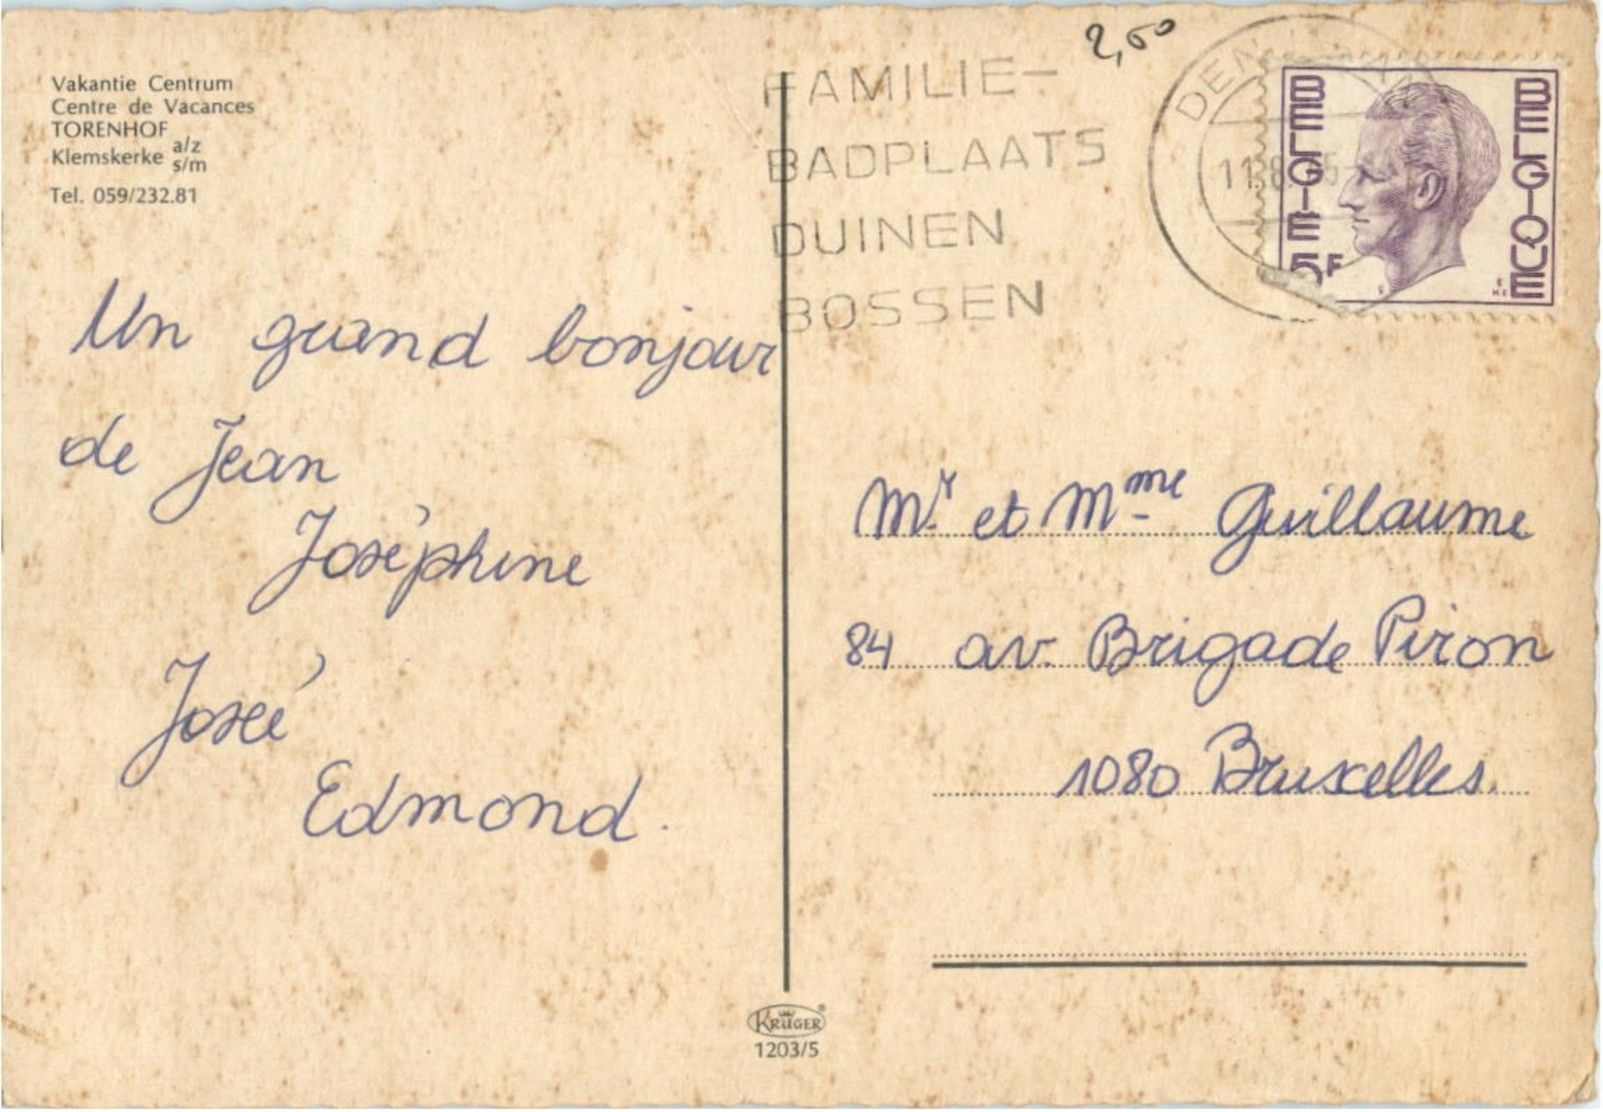 Vakantie Centrum
Centre de Vacances
TORENHOF
Klemskerke a/z s/m
Tel. 059/232.81
Un grand bonjour
de Jean
Joséphine
José
Edmond.
2,50
FAMILIE-
BADPLAATS
DUINEN
BOSSEN
DEN
BELGIE
5F
BELGIQUE
Mr et Mme Guillaume
84 av. Brigade Piron
1080 Bruxelles.
KRÜGER
1203/5